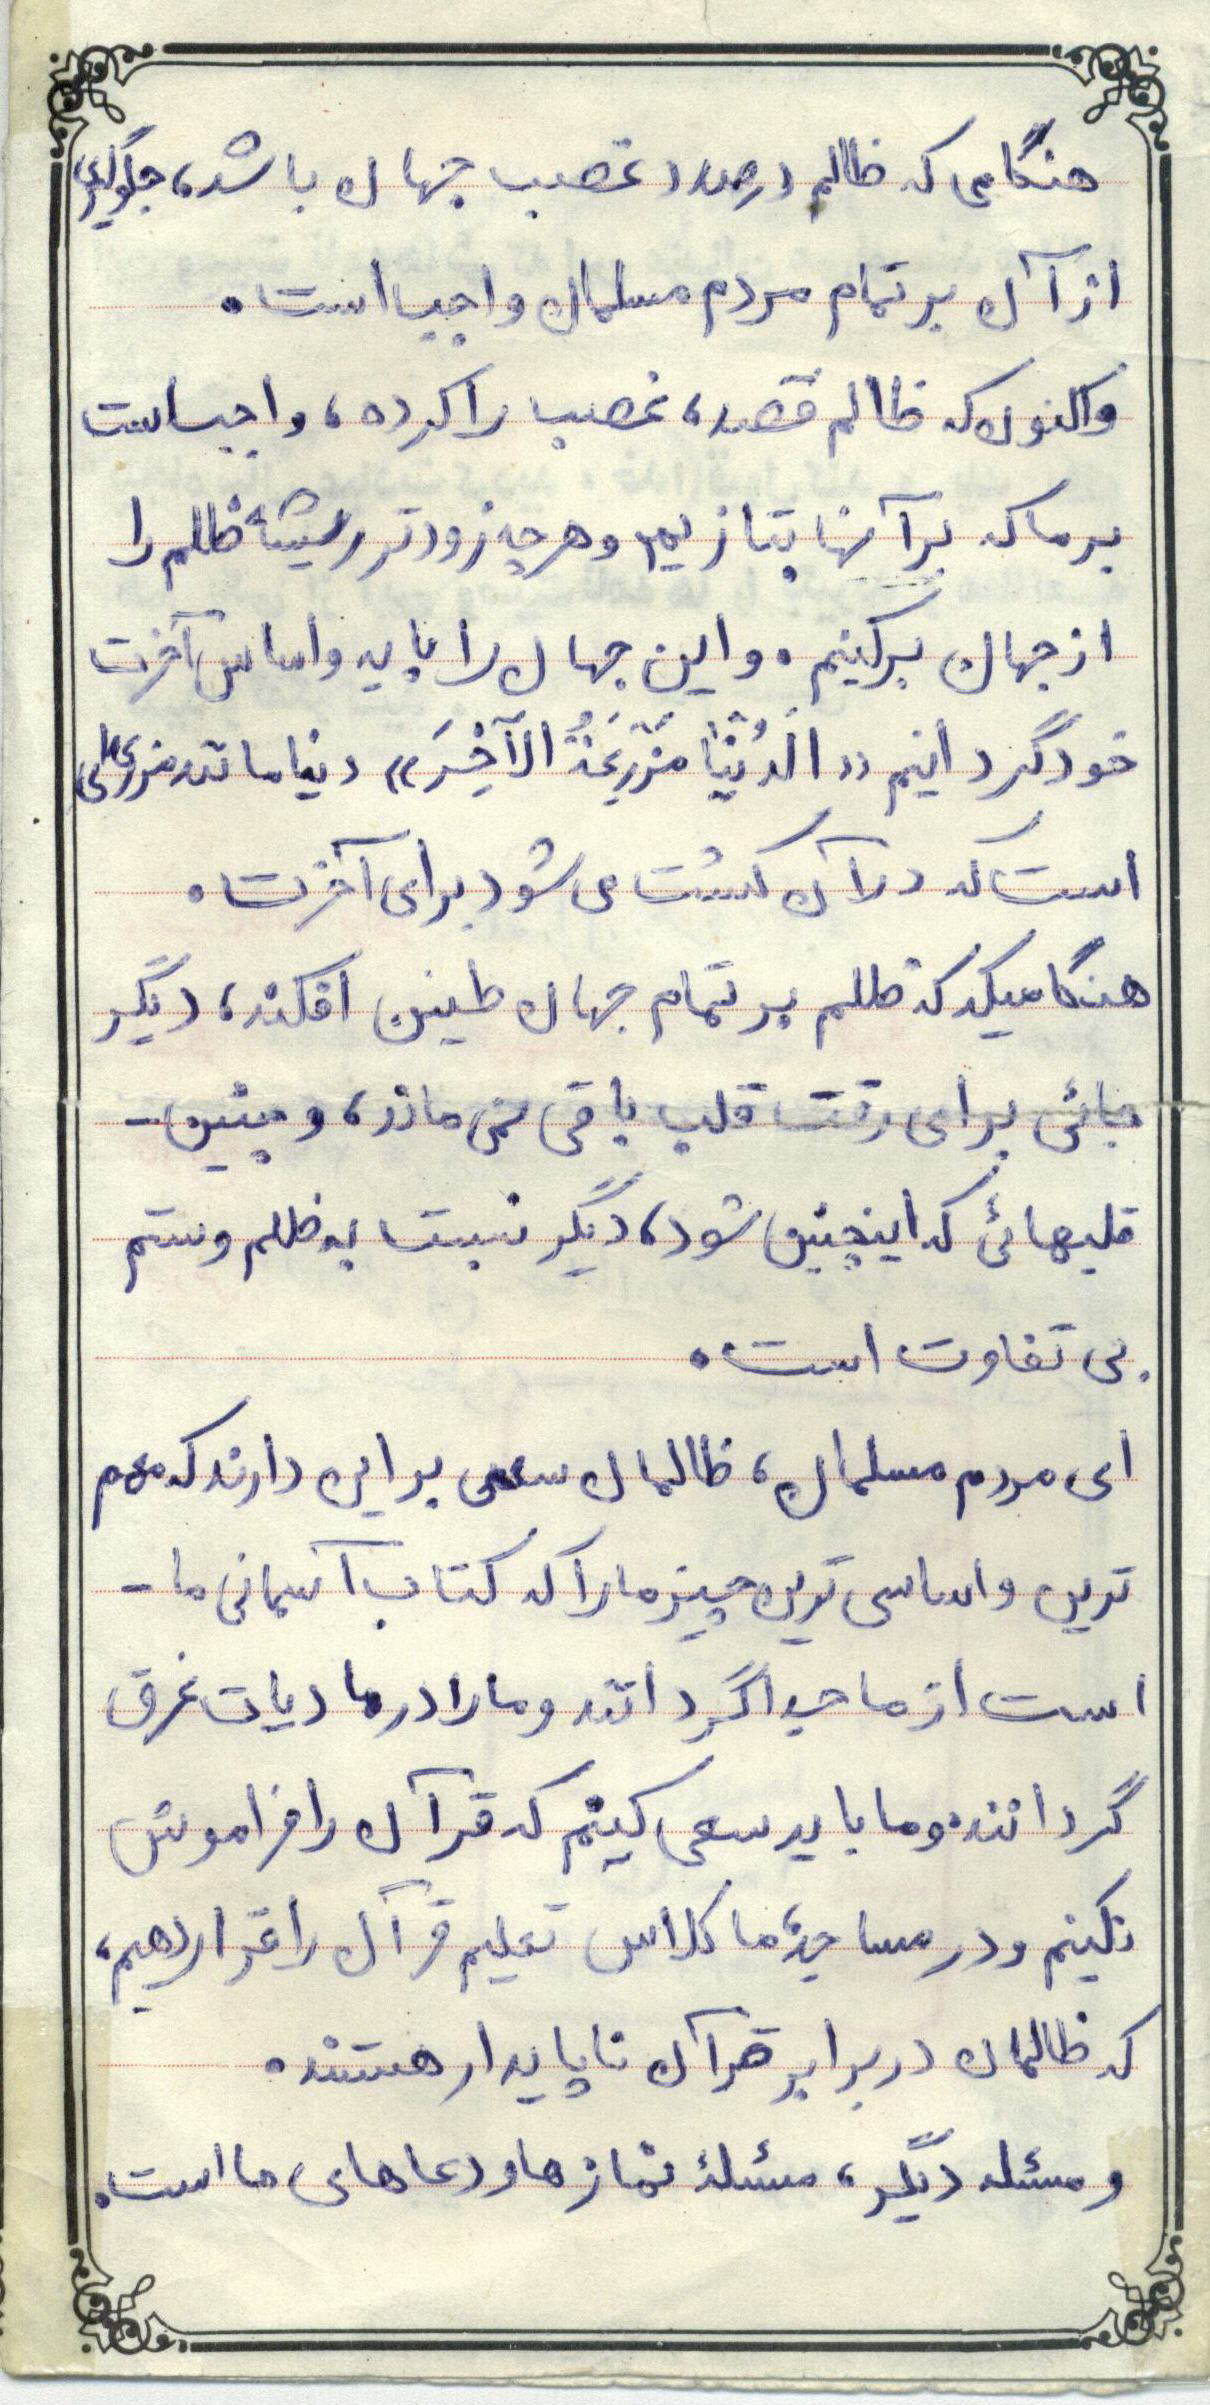 هنگامی که ظالم درصدد غصب جهان باشد، جلوگیری
از آن بر تمام مردم مسلمان واجب است.
واکنون که ظالم قصد، غصب را کرده، واجب است
بر ما که بر آنها بتازیم و هرچه زودتر ریشهٔ ظلم را
از جهان برکنیم. و این جهان را پایه و اساس آخرت
خود گردانیم «اَلدُنْیٰا مَزْرِعَةُ الآخِرَ» دنیا مانند مزرعه‌ای
است که در آن کشت می شود برای آخرت.
هنگامیکه که ظلم بر تمام جهان طنین افکند، دیگر
جائی برای رقت قلب باقی نمی ماند، و چنین -
قلبهائی که اینچنین شود، دیگر نسبت به ظلم و ستم
بی تفاوت است.
ای مردم مسلمان، ظالمان سعی بر این دارند که مهم
ترین و اساسی ترین چیز ما را که کتاب آسمانی ما -
است از ما جدا گردانند و ما را در مادیات غرق
گردانند. و ما باید سعی کنیم که قرآن را فراموش
نکنیم و در مساجد، ما کلاس تعلیم قرآن را قرار دهیم،
که ظالمان در برابر قرآن ناپایدار هستند.
و مسئله دیگر، مسئلهٔ نماز ها و دعا های ما است.